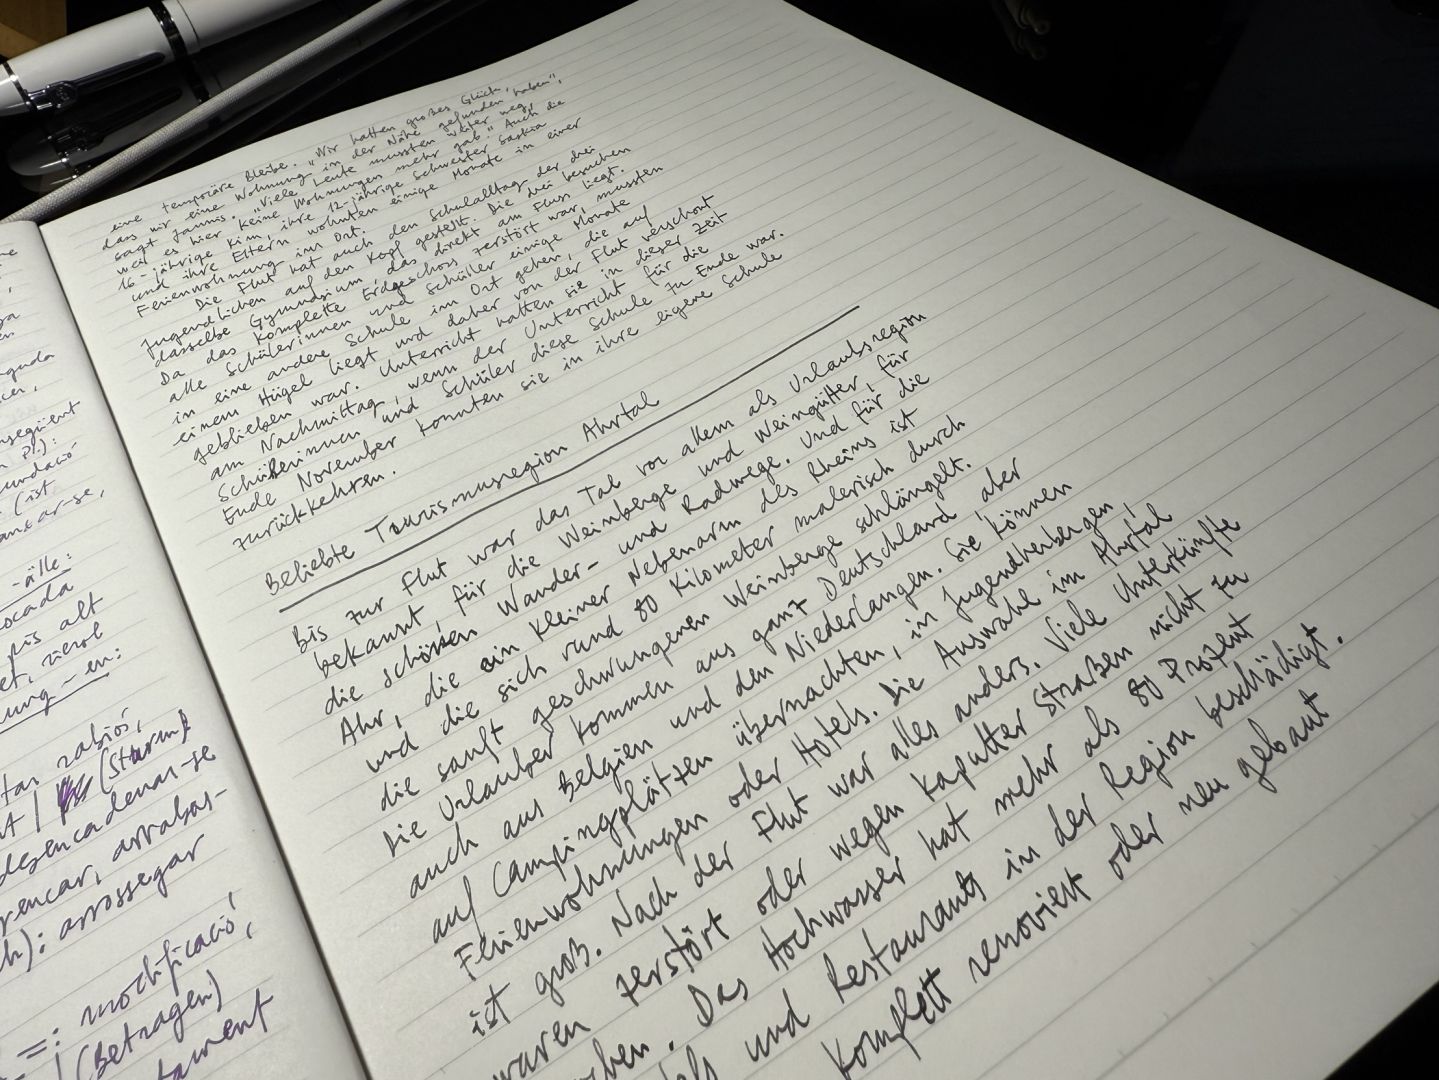 ne
,
ga
en
cer,
pl.):
(ist
-älle:
pis alt
ung – en:
tan rabiós,
(Sturm)
desencadenar-se
encar, arrabas-
h): arrossegar
=: modificació,
(Betragen)
tament
eine temporäre Bleibe. „Wir hatten großes Glück,
dass wir eine Wohnung in der Nähe gefunden haben“,
sagt Jannis. „Viele Leute mussten weiter weg,
weil es hier keine Wohnungen mehr gab.“ Auch die
16-jährige Kim, ihre 12-jährige Schwester Saskia
und ihre Eltern wohnten einige Monate in einer
Ferienwohnung im Ort.
Die Flut hat auch den Schulalltag der drei
Jugendlichen auf den Kopf gestellt. Die drei besuchen
dasselbe Gymnasium, das direkt am Fluss liegt.
Da das komplette Erdgeschoss zerstört war, mussten
alle Schülerinnen und Schüler einige Monate
in eine andere Schule im Ort gehen, die auf
einem Hügel liegt und daher von der Flut verschont
geblieben war. Unterricht hatten sie in dieser Zeit
am Nachmittag, wenn der Unterricht für die
Schülerinnen und Schüler diese Schule zu Ende war.
Ende November konnten sie in ihre eigene Schule
zurückkehren.
Beliebte Tourismusregion Ahrtal
Bis zur Flut war das Tal vor allem als Urlaubsregion
bekannt, für die Weinberge und Weingütter, für
die schönen Wander- und Radwege. Und für die
Ahr, die ein kleiner Nebenarm des Rheins ist
und die sich rund 80 Kilometer malerisch durch
die sanft geschwungenen Weinberge schlängelt.
Die Urlauber kommen aus ganz Deutschland, aber
auch aus Belgien und den Niederlangen. Sie können
auf Campingplätzen übernachten, in Jugendherbergen,
Ferienwohnungen oder Hotels. Die Auswahl im Ahrtal
ist groß. Nach der Flut war alles anders. Viele Unterkünfte
waren zerstört oder wegen kaputter Straßen nicht zu
Das Hochwasser hat mehr als 80 Prozent
und Restaurants in der Region beschädigt.
komplett renoviert oder neu gebaut